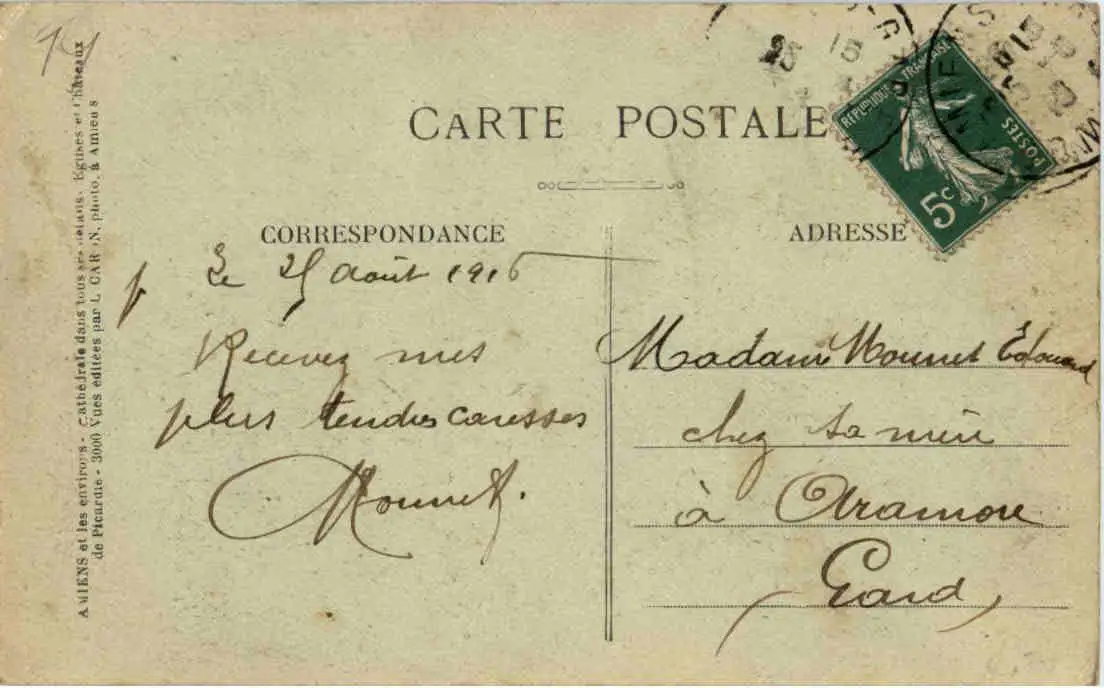 CARTE POSTALE
CORRESPONDANCE
Le 25 Août 1916
Recevez mes
plus tendres caresses
Mounet.
ADRESSE
Madame Mounet Edouard
chez sa mère
à Aramon
Gard
RÉPUBLIQUE FRANÇAISE
POSTES
5c
AMIENS
AMIENS et les environs - Cathédrale dans tous ses détails. Eglises et Châteaux
de Picardie - 3000 Vues éditées par L. CARON, photo. à Amiens